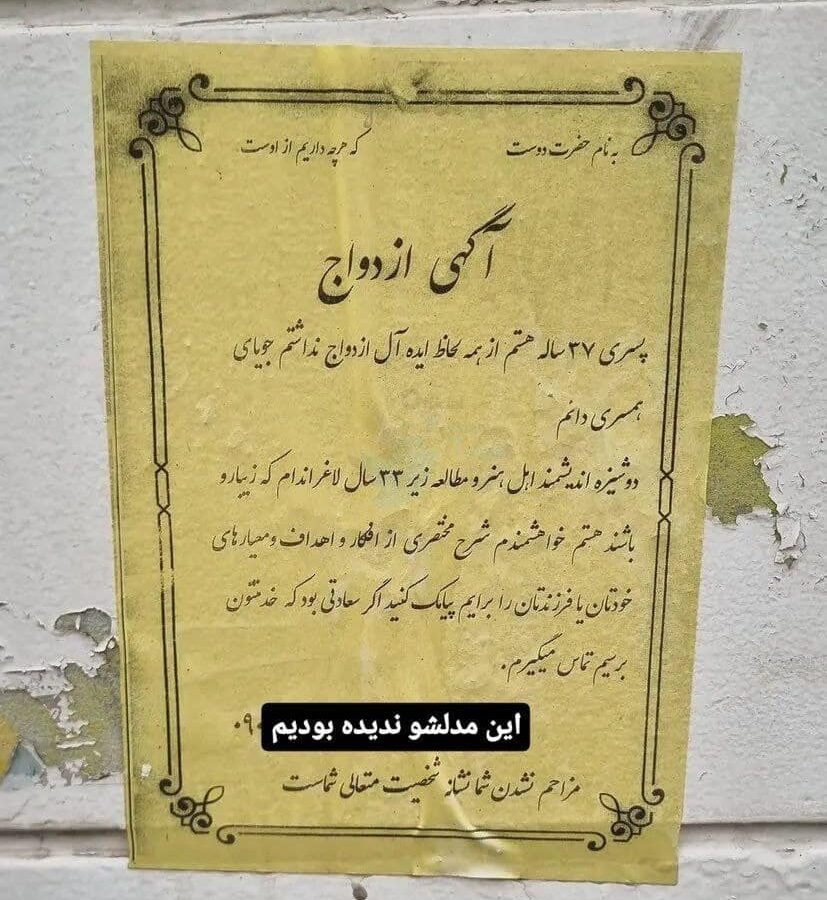 به نام حضرت دوست که هرچه داریم از اوست
آگهی ازدواج
پسری ۳۷ ساله هستم از همه لحاظ ایده آل ازدواج نداشتم جویای
همسری دائم
دوشیزه اندیشمند اهل هنر و مطالعه زیر ۳۳ سال لاغر اندام که زیبارو
باشند هستم خواهشمندم شرح مختصری از افکار و اهداف و معیارهای
خودتان یا فرزندتان را برایم پیامک کنید اگر سعادتی بود که خدمتتون
برسیم تماس میگیرم.
۰۹۰
این مدلشو ندیده بودیم
مزاحم نشدن شما نشانه شخصیت متعالی شماست